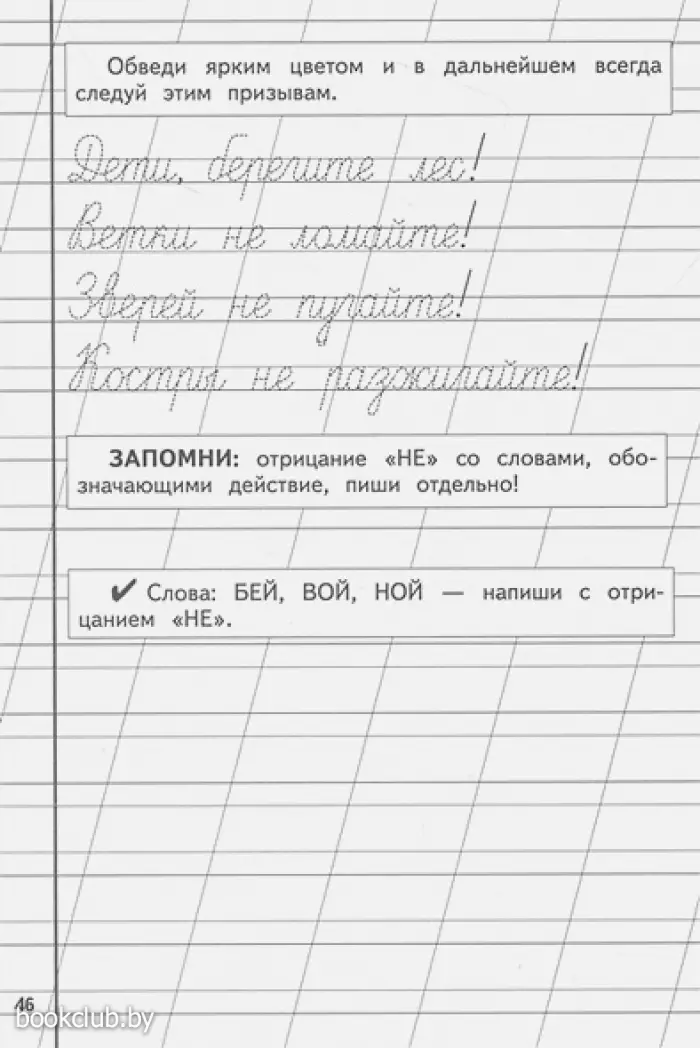 Обведи ярким цветом и в дальнейшем всегда
следуй этим призывам.
Дети, берегите лес!
Ветки не ломайте!
Зверей не пугайте!
Костры не разжигайте!
ЗАПОМНИ: отрицание «НЕ» со словами, обо-
значающими действие, пиши отдельно!
✔ Слова: БЕЙ, ВОЙ, НОЙ — напиши с отри-
цанием «НЕ».
46
bookclub.by